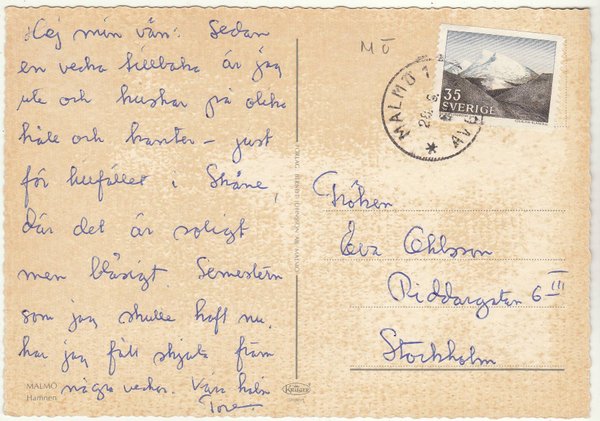 Hej min vän! Sedan
en vecka tillbaka är jag
ute och huskar på olika
håll och kanter – just
för tillfället i Skåne,
där det är soligt
men blåsigt. Semestern
som jag skulle haft nu
har jag fått skjuta fram
några veckor. Vara
Tore.
MALMÖ
Hamnen
MÖ
MALMÖ 1
AVG
35
SVERIGE
Fröken
Eva Ohlsson
Riddargatan 6 III
Stockholm